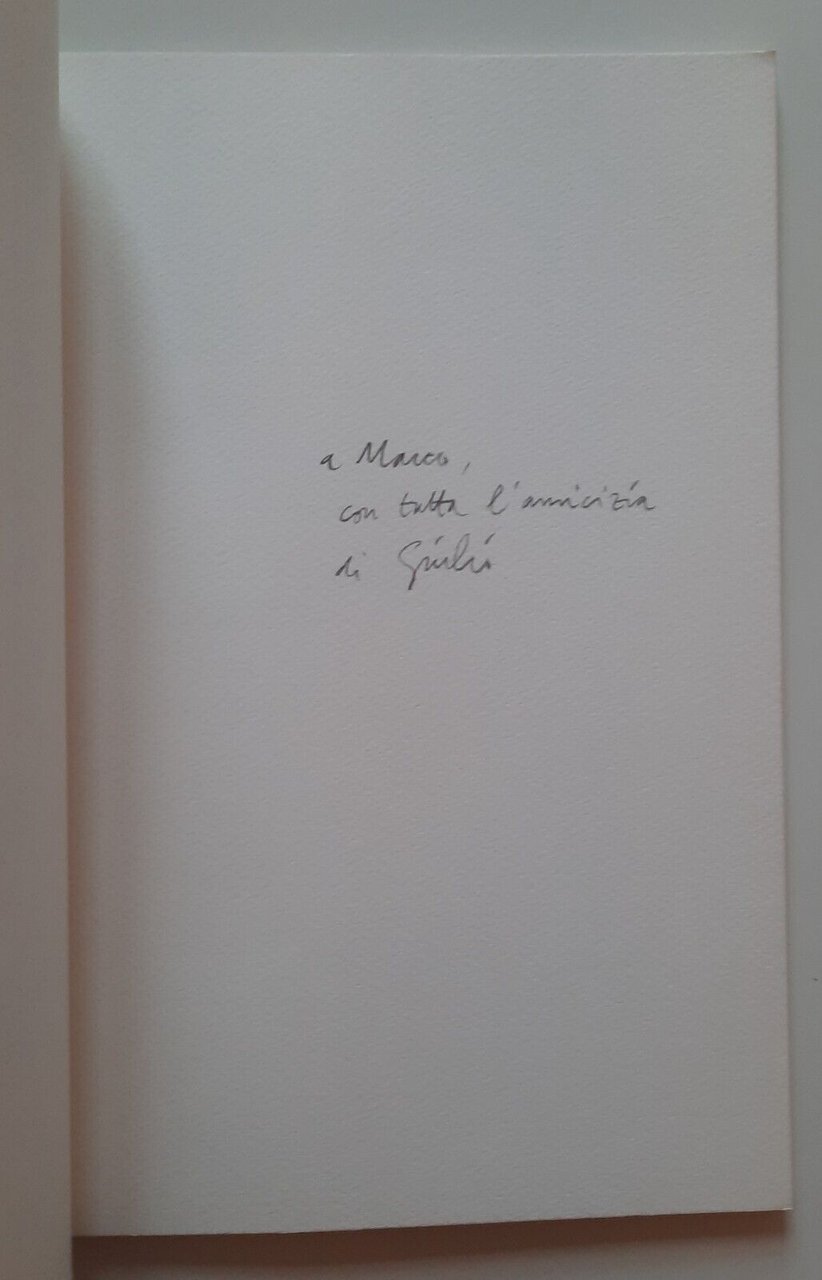 a Marco,
con tutta l'amicizia
di Giulio